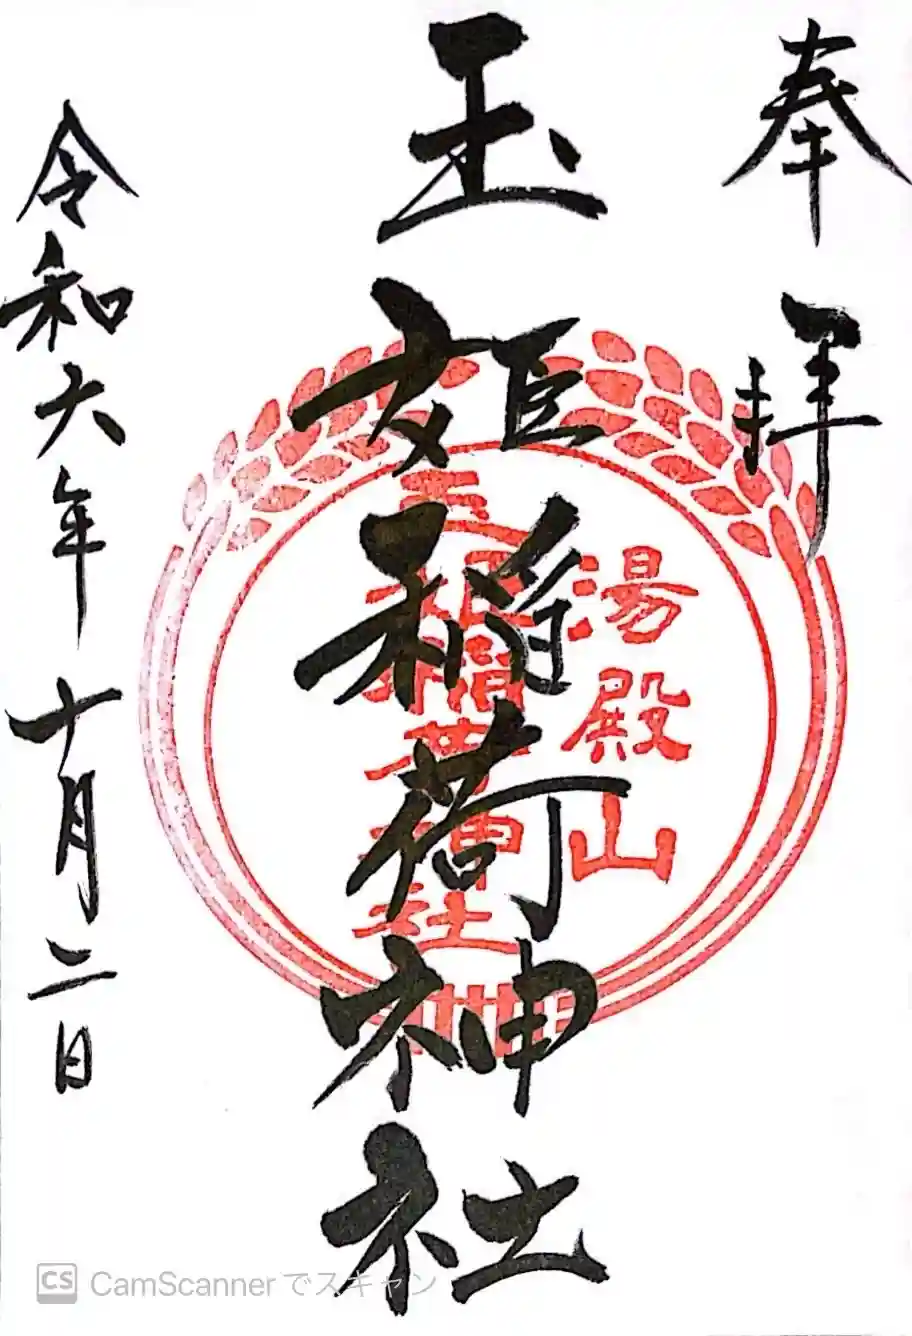 奉拝
湯殿山
玉姫稲荷神社
玉姫稲荷神社
令和六年十月二日
CS CamScannerでスキャン